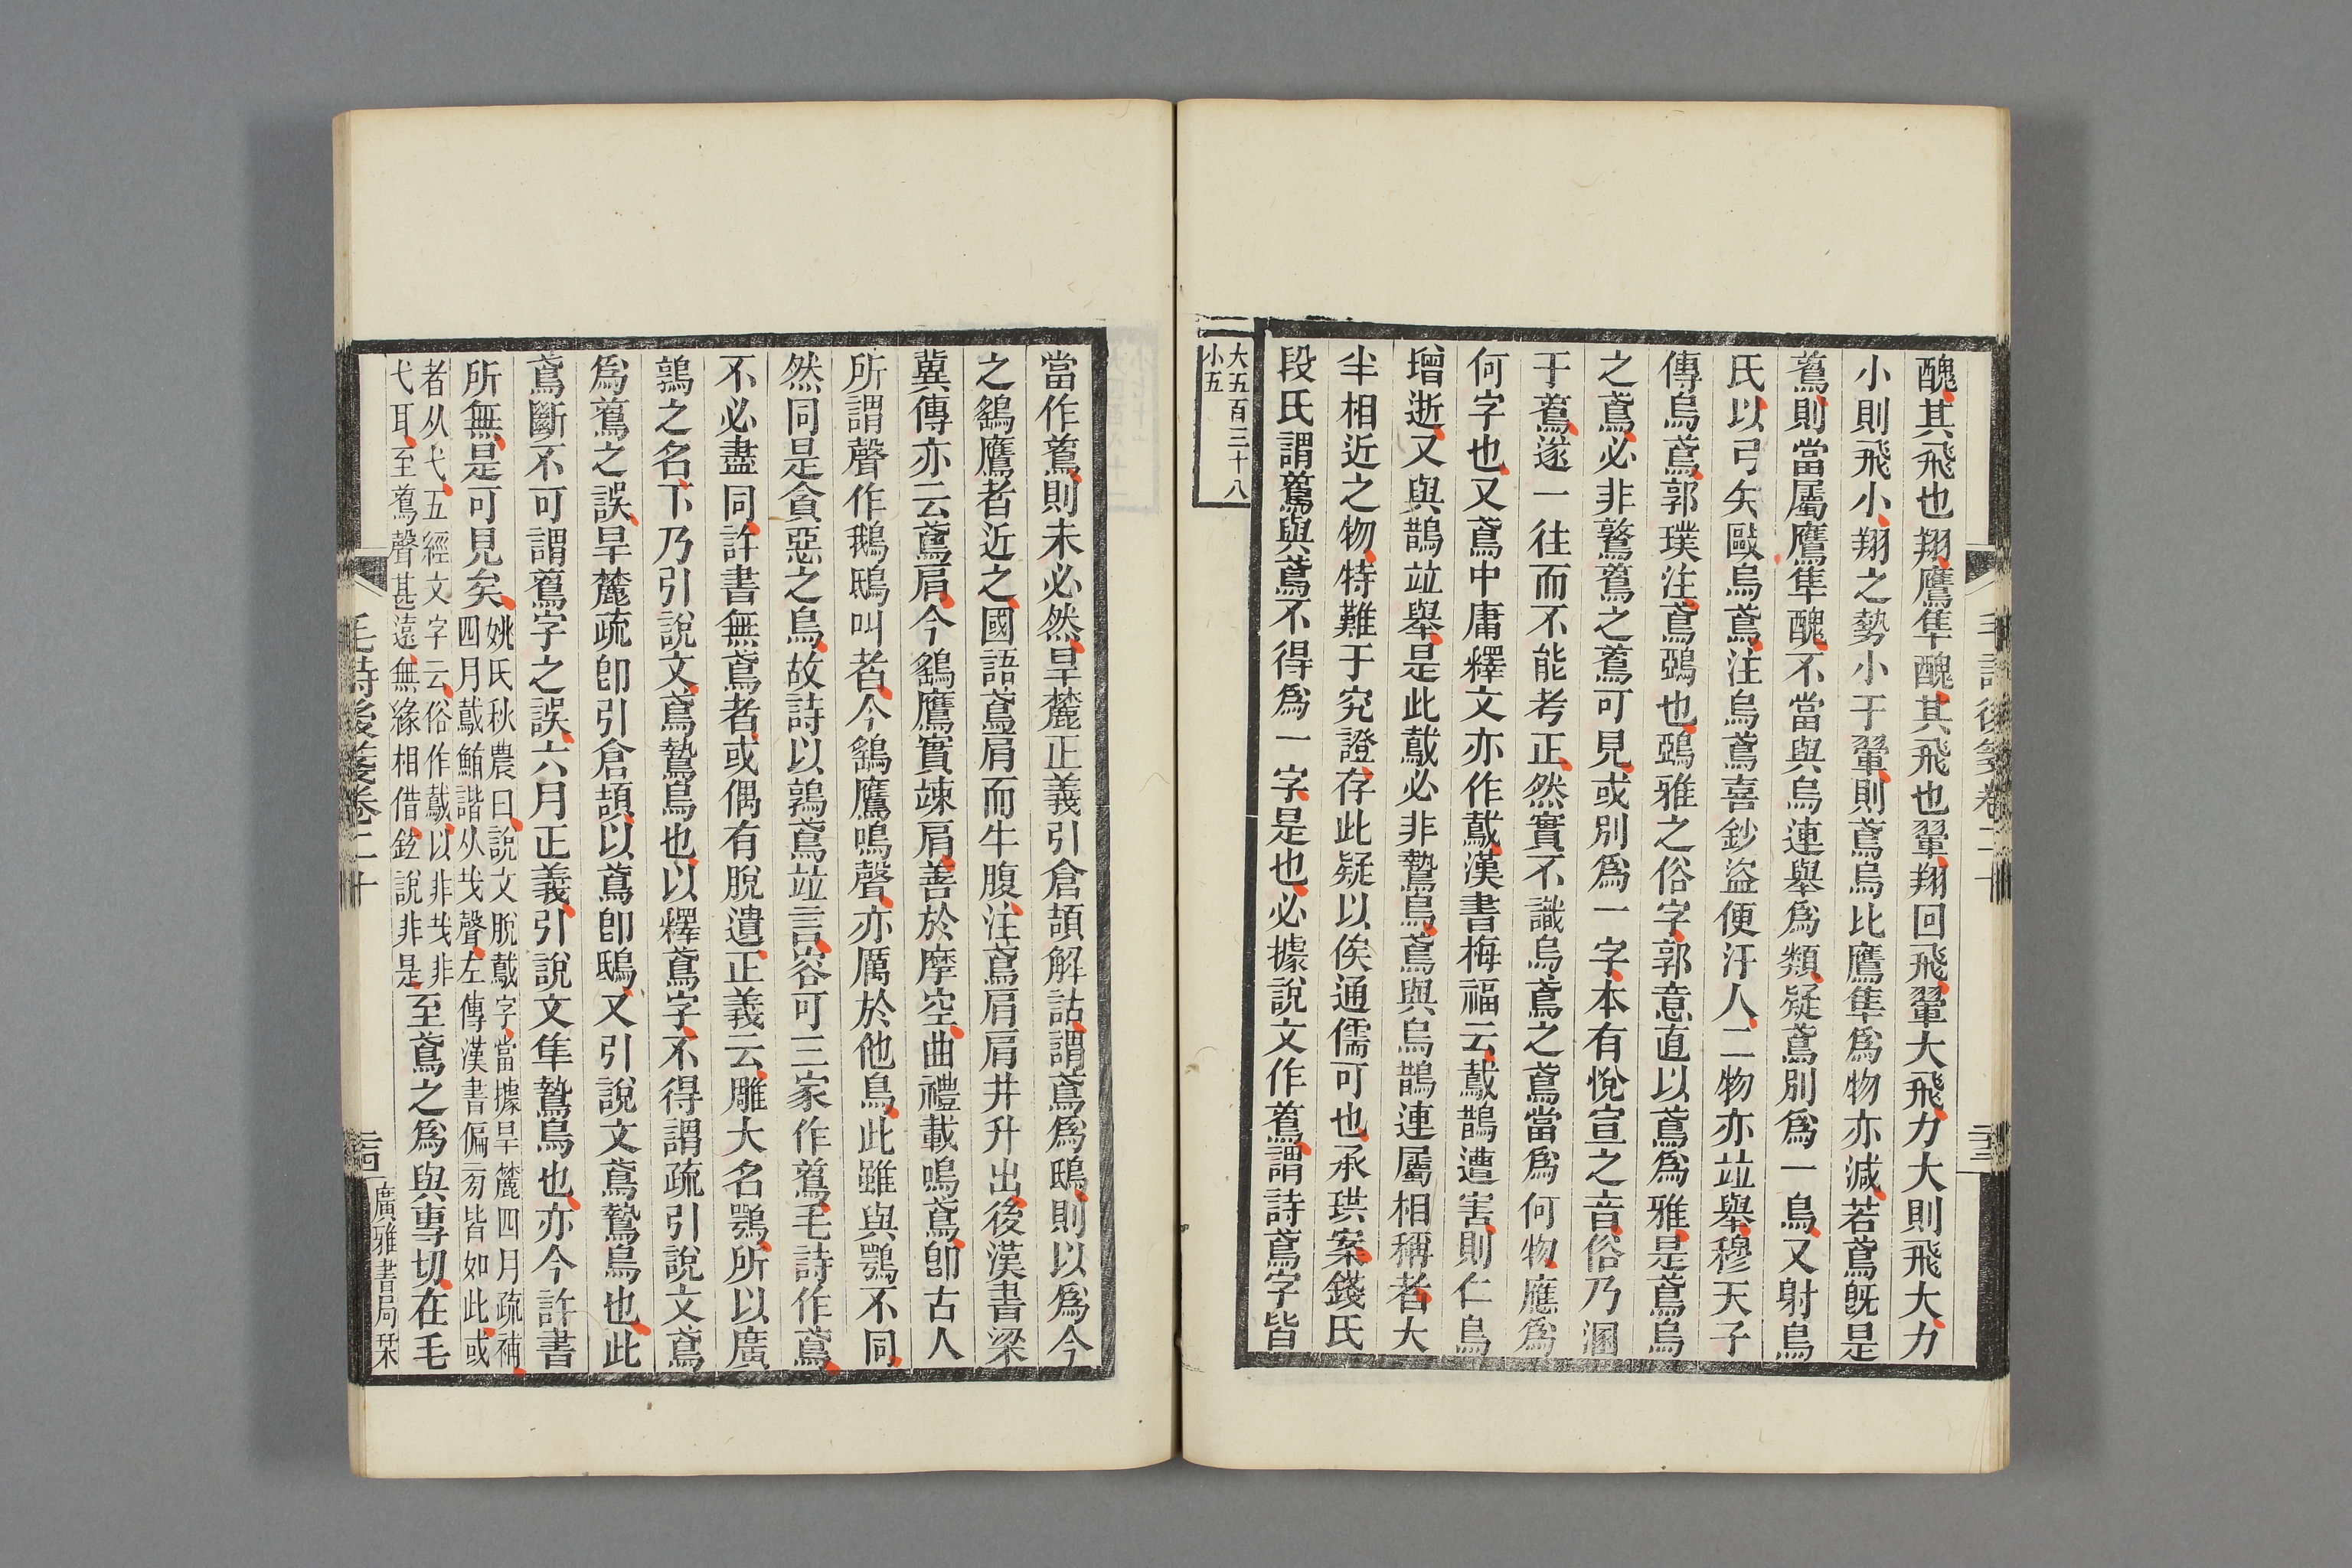 醜其飛也翔鷹隼醜其飛也翬翔回飛翬大飛力大則飛大力
小則飛小翔之勢小于翬則鳶烏比鷹隼爲物亦減若鳶旣是
鴽則當屬鷹隼醜不當與烏連舉爲類疑鳶別爲一鳥又射鳥
氏以弓矢毆烏鳶注烏鳶喜鈔盜便汙人二物亦竝舉穆天子
傳烏鳶郭璞注鳶鵶也鵶雅之俗字郭意直以鳶爲雅是鳶烏
之鳶必非鷙䳒之䳒可見或別爲一字本有悅宣之音俗乃溷
于䳒遂一往而不能考正然實不識烏鳶之鳶當爲何物應爲
何字也又鳶中庸釋文亦作䳒漢書梅福云䳒鵲遭害則仁鳥
增逝又與鵲竝舉是此䳒必非鷙鳥鳶與烏鵲連屬相稱者大
半相近之物特難于究證存此疑以俟通儒可也承珙案錢氏
段氏謂䳒與鳶不得爲一字是也必據說文作䳒謂詩鳶字皆
大五百三十八
小五
毛詩後箋卷二十
三十三
當作䳒則未必然旱麓正義引倉頡解詁謂鳶爲鴟則以爲今
之鷂鷹者近之國語鳶肩而牛腹注鳶肩肩井升出後漢書梁
冀傳亦云鳶肩今鷂鷹實竦肩善於摩空曲禮載鳴鳶卽古人
所謂聲作鵝鴟叫者今鷂鷹鳴聲亦厲於他鳥此雖與鶚不同
然同是貪惡之鳥故詩以鶉鳶竝言容可三家作䳒毛詩作鳶
不必盡同許書無鳶者或偶有脫遺正義云雕大名鶚所以廣
鶉之名下乃引說文鳶鷙鳥也以釋鳶字不得謂疏引說文鳶
爲䳒之誤旱麓疏卽引倉頡以鳶卽鴟又引說文鳶鷙鳥也此
鳶斷不可謂䳒字之誤六月正義引說文隼鷙鳥也亦今許書
所無是可見矣姚氏秋農曰說文脫䳒字當據旱麓四月疏補
四月䳒鮪諧从𢦏聲左傳漢書偏旁皆如此或
者从弋五經文字云俗作䳒以非𢦏非
弋耳至䳒聲甚遠無緣相借錢說非是至鳶之爲與專切在毛
毛詩後箋卷二十
三十四
廣雅書局栞